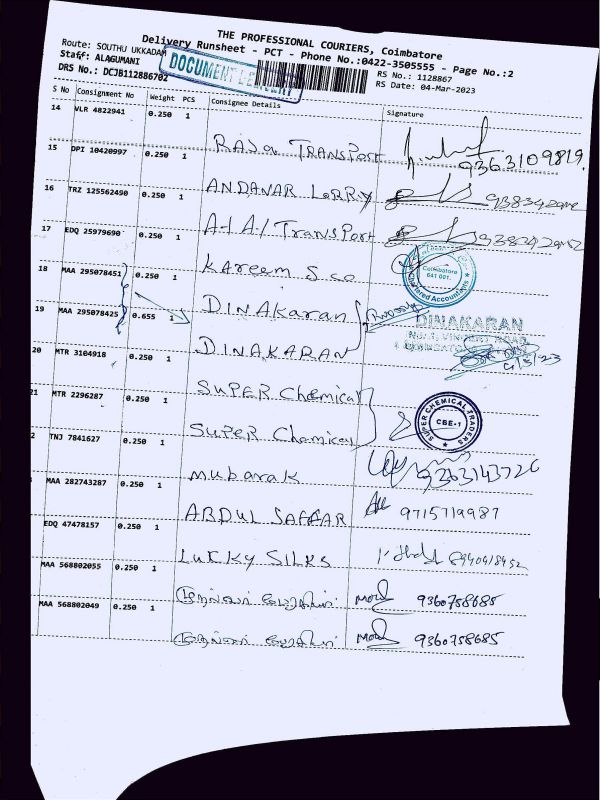 THE PROFESSIONAL COURIERS, Coimbatore
Delivery Runsheet - PCT - Phone No.:0422-3505555 - Page No.:2
Route: SOUTHU UKKADAM
Staff: ALAGUMANI
DRS No.: DCJB112886702
DOCUMENT
RS No.: 1128867
RS Date: 04-Mar-2023
S No Consignment No Weight PCS Consignee Details Signature
14 VLR 4822941 0.250 1 RAJA TRANSPORT 9363109819
15 DPI 10420997 0.250 1 ANDANAR LORRY
16 TRZ 125562490 0.250 1 A-1 A1 TRANSPORT
17 EDQ 25979690 0.250 1 Kareem & co
Coimbatore
641 001.
Chartered Accountants
18 MAA 295078451 0.250 1 DINAKaran
19 MAA 295078425 0.655 1 DINAKARAN
DINAKARAN
4/3/23
20 MTR 3104918 0.250 1 SUPER Chemical
21 MTR 2296287 0.250 1 SUPER Chemical
SUPER CHEMICAL TRADERS
CBE-1
2 TNJ 7841627 0.250 1 mubarak
MAA 282743287 0.250 1 ABDUL SAFFAR 9715719987
EDQ 47478157 0.250 1 LUCKY SILKS
MAA 568802055 0.250 1 9360758685
MAA 568802049 0.250 1 9360758685